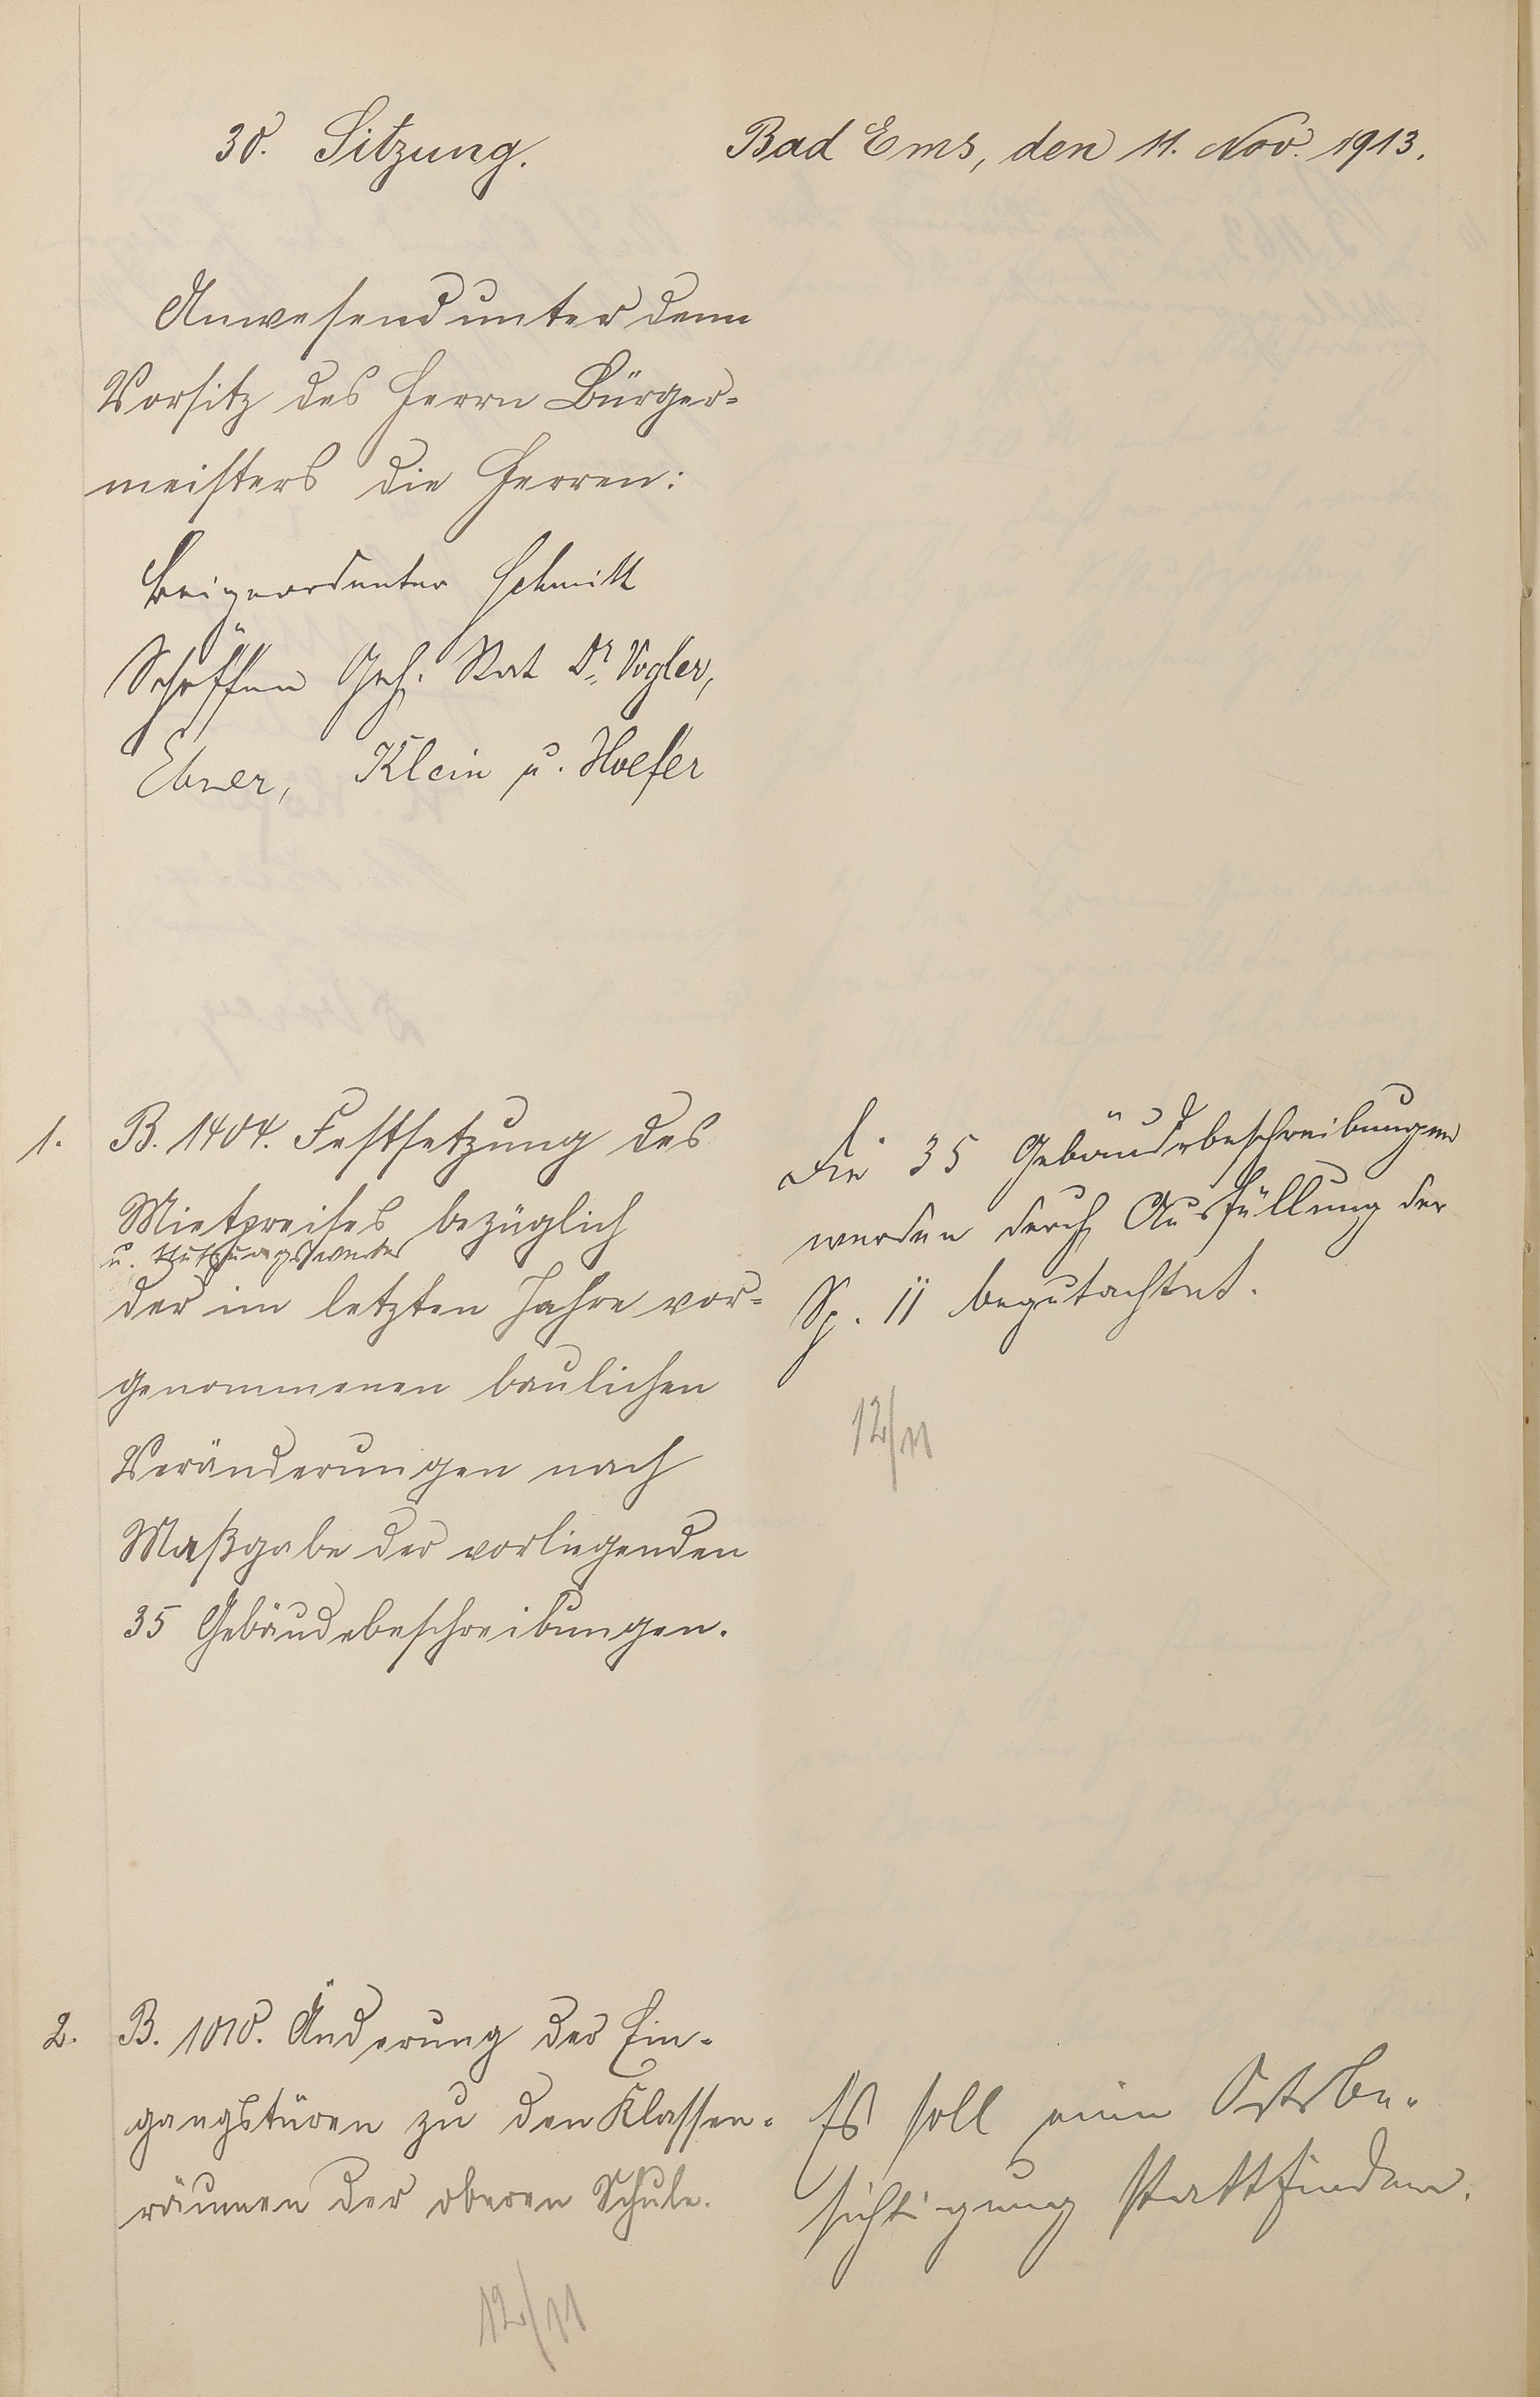 38. Sitzung.
Bad Ems, den 11. Nov. 1913.
Anwesend unter dem
Vorsitz des Herrn Bürger-
meisters die Herren:
Beigeordneter Schmitt
Schöffen Geh. Rat Dr. Vogler,
Ebner, Klein u. Hoefer
1. B. 1404. Festsetzung des
Mietpreises bezüglich
u. Nutzungswertes
der im letzten Jahre vor-
genommenen baulichen
Veränderungen nach
Maßgabe der vorliegenden
35 Gebäudebeschreibungen.
Die 35 Gebäudebeschreibungen
werden durch Ausfüllung der
Sp. 11 begutachtet.
12/11
2. B. 1018. Änderung der Ein-
gangstüren zu den Klassen-
räumen der oberen Schule.
Es soll eine Ortsbe-
sichtigung stattfinden.
12/11